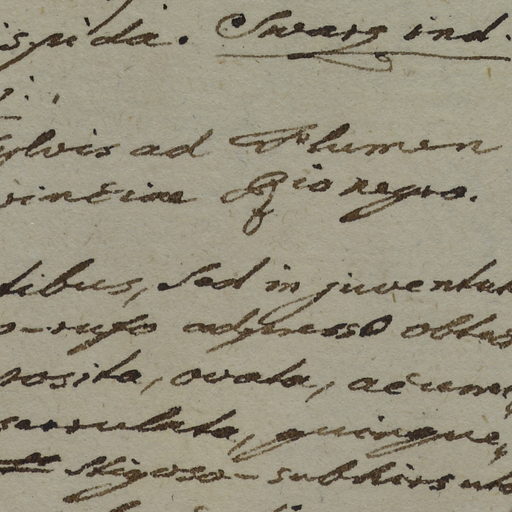 ispida. Swarz ind.
sylvis ad Flumen
vinciae Rio negro.
tibus, sed in juventut
o-rufo adpresso obtus
posita, ovata, acumi
serrulata, quinque,
strigoso-subhirsuto